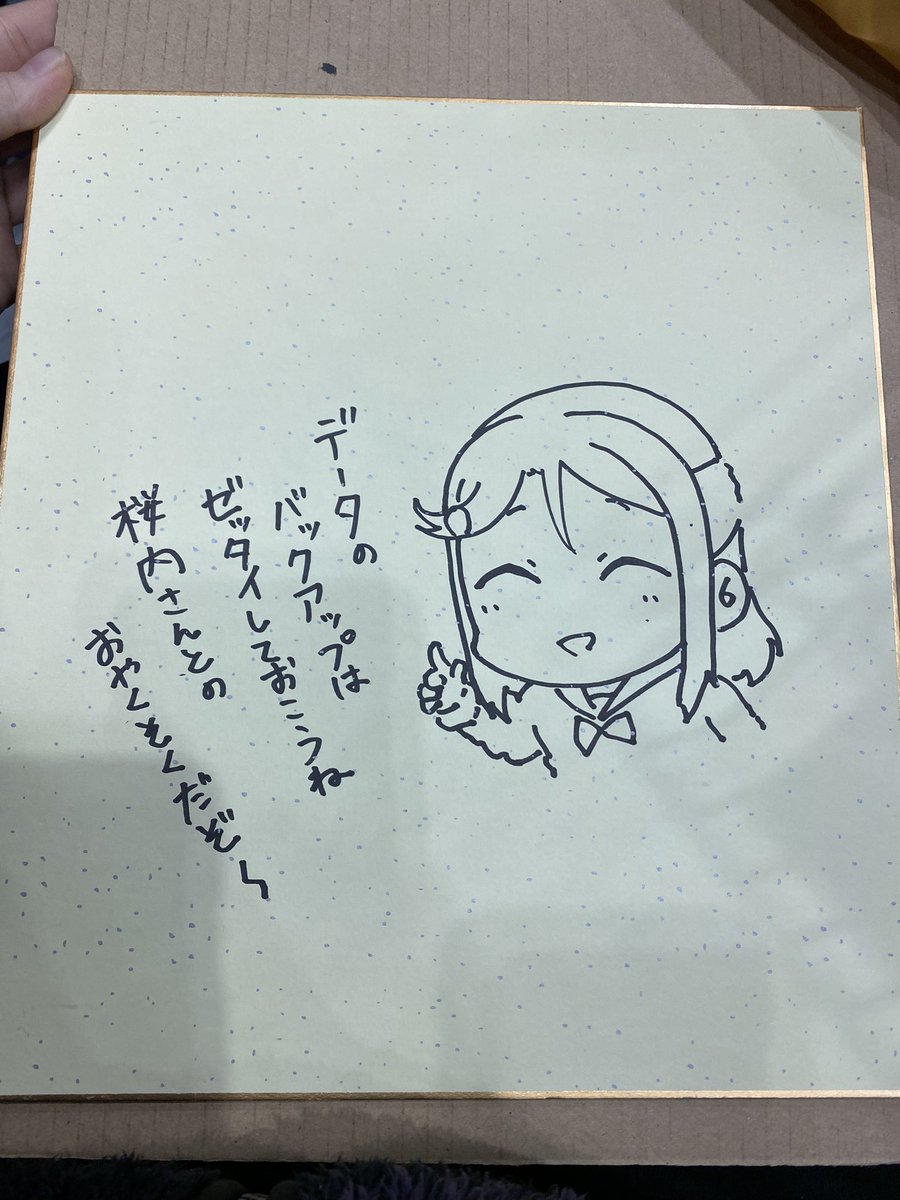 データの
バックアップは
ゼッタイしておこうね
桜内さんとの
おやくそくだぞ〜
6